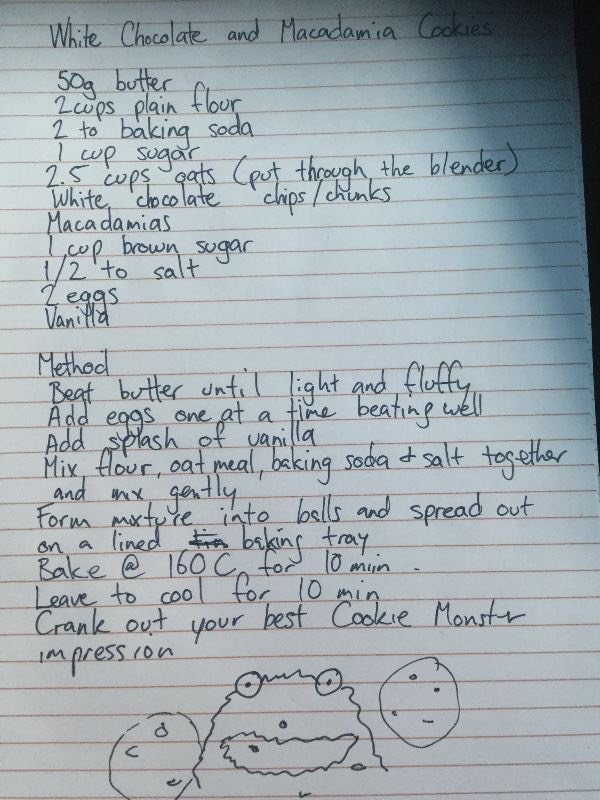 White Chocolate and Macadamia Cookies
50g butter
2 cups plain flour
2 to baking soda
1 cup sugar
2.5 cups oats (put through the blender)
White chocolate chips/chunks
Macadamias
1 cup brown sugar
1/2 to salt
2 eggs
Vanilla
Method
Beat butter until light and fluffy
Add eggs one at a time beating well
Add splash of vanilla
Mix flour, oatmeal, baking soda & salt together
and mix gently
Form mixture into balls and spread out
on a lined tin baking tray
Bake @ 160 C for 10 min.
Leave to cool for 10 min
Crank out your best Cookie Monster
impression